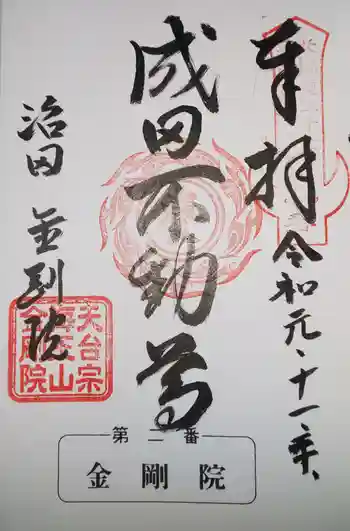 奉拝
令和元、十一、
成田不動尊
治田 金剛院
天台宗
山
金剛院
第二番
金剛院